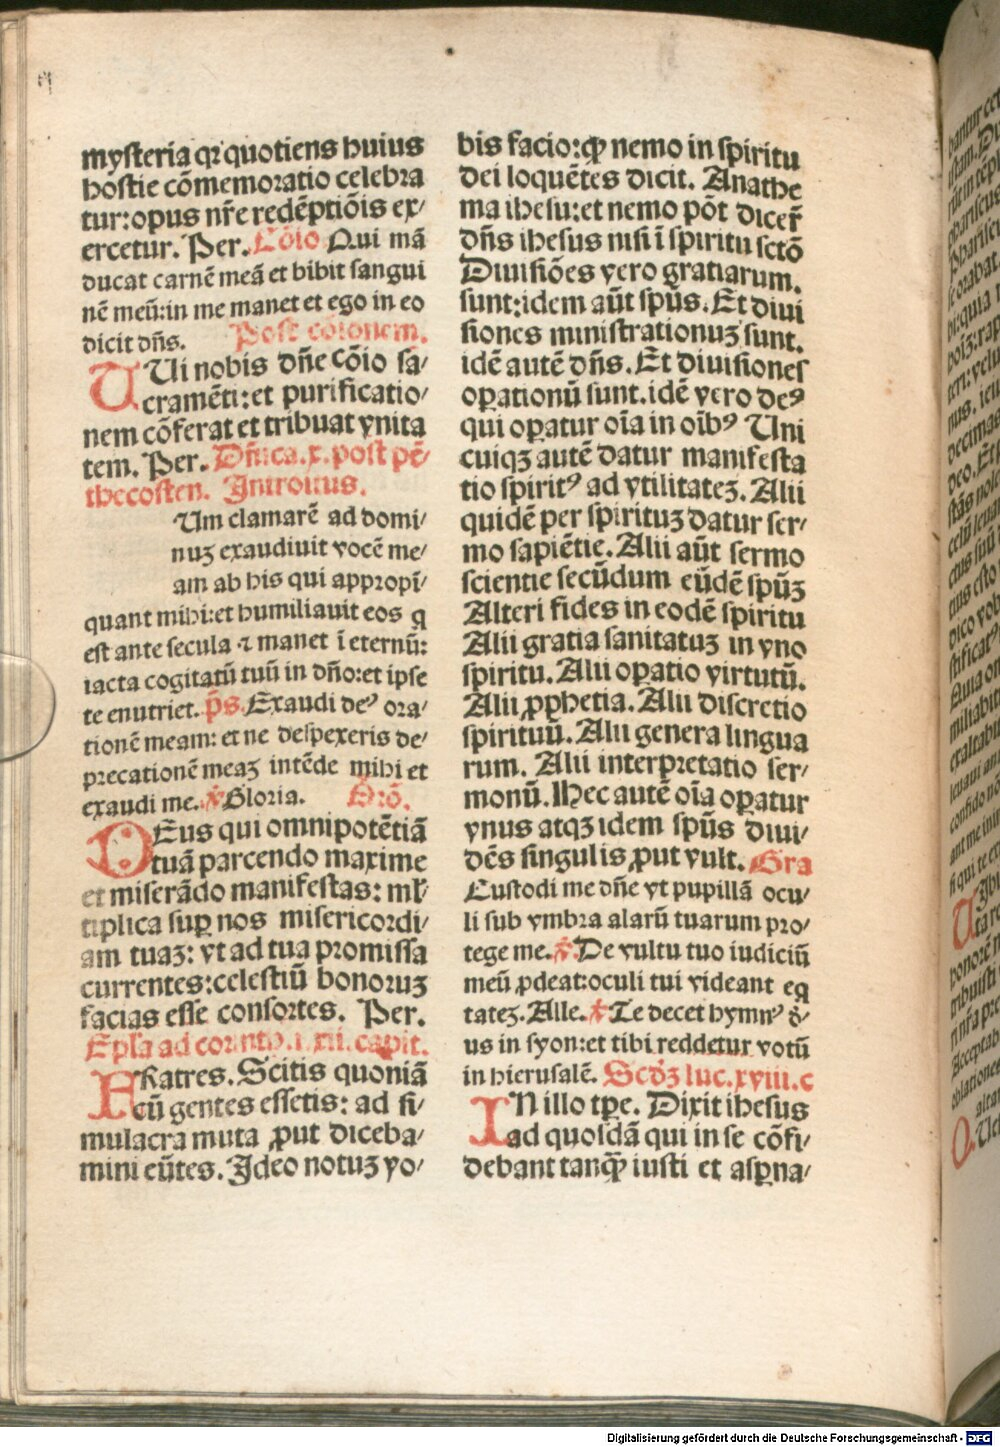 mysteria qꝛ quotiens huius
hostie cōmemoratio celebra
tur: opus nr̄e redēptiōis ex⸗
ercetur. Per. Cōio Qui mā
ducat carnē meā et bibit sangui
nē meū: in me manet et ego in eo
dicit dn̄s. Post cōionem.
UUi nobis dn̄e cōio sa⸗
cramēti: et purificatio⸗
nem cōferat et tribuat vnita
tem. Per. Dn̄ica. x. post pē⸗
thecosten. Introitus.
Um clamarē ad domi⸗
nuꝫ exaudiuit vocē me⸗
am ab his qui appropī⸗
quant mihi: et humiliauit eos q
est ante secula ⁊ manet ī eternū:
iacta cogitatū tuū in dn̄o: et ipse
te enutriet. p̄s. Exaudi deꝰ ora⸗
tionē meam: et ne despexeris de⸗
precationē meaꝫ intēde mihi et
exaudi me. ℣ Gloria. Orō.
DEus qui omnipotētiā
tuā parcendo maxime
et miserādo manifestas: ml̄⸗
tiplica suꝑ nos misericordi⸗
am tuaꝫ: vt ad tua promissa
currentes: celestiū bonoruꝫ
facias esse consortes. Per.
Epl̄a ad corinth. i. xii. capit.
FRatres. Scitis quoniā
cū gentes essetis: ad si⸗
mulacra muta ꝓut diceba⸗
mini eūtes. Ideo notuꝫ vo⸗
bis facio: ꝙ nemo in spiritu
dei loquētes dicit. Anathe
ma ihesu: et nemo pōt dicer̄
dn̄s ihesus nisi ī spiritu sctō
Diuisiōes vero gratiarum.
sunt: idem aūt spūs. Et diui
siones ministrationuꝫ sunt.
idē autē dn̄s. Et diuisiones
oꝑationū sunt. idē vero deꝰ
qui oꝑatur oīa in oībꝰ Uni
cuiqꝫ autē datur manifesta
tio spiritꝰ ad vtilitateꝫ. Alii
quidē per spirituꝫ datur ser⸗
mo sapiētie. Alii aūt sermo
scientie secūdum eūdē spūꝫ
Alteri fides in eodē spiritu
Alii gratia sanitatuꝫ in vno
spiritu. Alii oꝑatio virtutū.
Alii ꝓphetia. Alii discretio
spirituū. Alii genera lingua
rum. Alii interpretatio ser⸗
monū. Hec autē oīa oꝑatur
vnus atqꝫ idem spūs diui⸗
dēs singulis ꝓut vult. Gra
Custodi me dn̄e vt pupillā ocu⸗
li sub vmbra alarū tuarum pro⸗
tege me. ℣ De vultu tuo iudiciū
meū ꝓdeat: oculi tui videant eq
tateꝫ. Alle. ℣ Te decet hymnꝰ d̄⸗
us in syon: et tibi reddetur votū
in hierusalē. Scd̄ꝫ luc. xviii. c
IN illo tꝑe. Dixit ihesus
ad quosdā qui in se cōfi⸗
debant tanqꝙ̄ iusti et asꝑna⸗
Digitalisierung gefördert durch die Deutsche Forschungsgemeinschaft - DFG